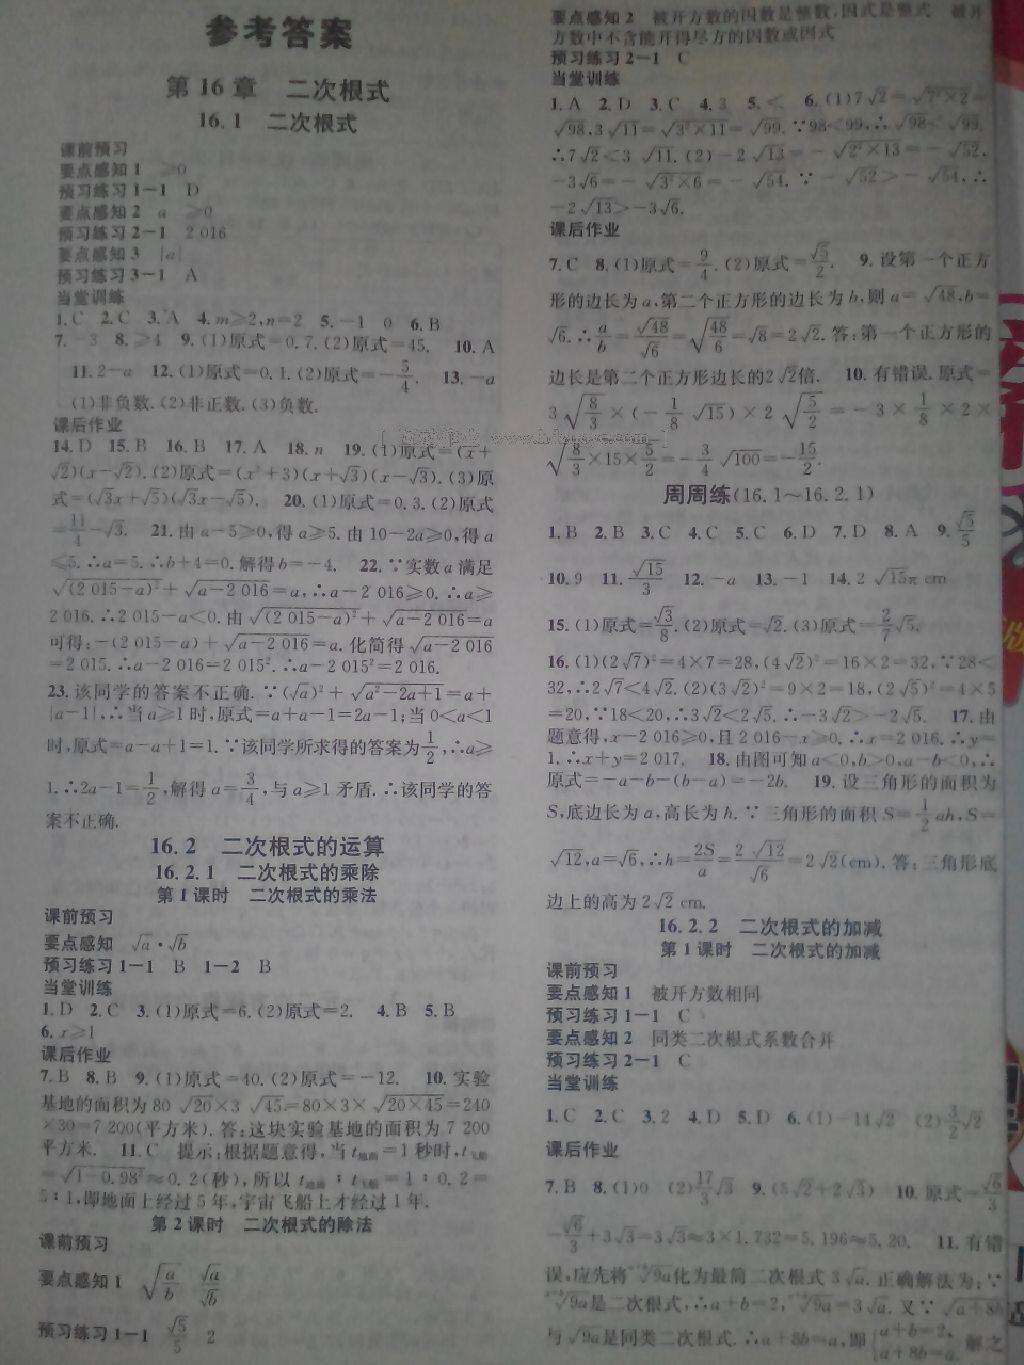 参考答案
第16章 二次根式
16.1 二次根式
课前预习
要点感知1 ≥0
预习练习1-1 D
要点感知2 a ≥0
预习练习2-1 2 016
要点感知3 |a|
预习练习3-1 A
当堂训练
1.C 2.C 3.A 4.m≥2,n=2 5.-1 0 6.B
7.-3 8.≥4 9.(1)原式=0.7.(2)原式=45. 10.A
11.2-a 12.(1)原式=0.1.(2)原式=-5/4. 13.-a
(1)非负数.(2)非正数.(3)负数.
课后作业
14.D 15.B 16.B 17.A 18.n 19.(1)原式=(x+
√2)(x-√2).(2)原式=(x²+3)(x+√3)(x-√3).(3)原
式=(√3x+√5)(√3x-√5). 20.(1)原式=0.3.(2)原式
=11/4-√3. 21.由a-5≥0,得a≥5.由10-2a≥0,得a
≤5.∴a=5.∴b+4=0.解得b=-4. 22.∵实数a满足
√(2 015-a)²+√a-2 016=a,∴a-2 016≥0.∴a≥
2 016.∴2 015-a<0.由√(2 015-a)²+√a-2 016=a
可得:-(2 015-a)+√a-2 016=a.化简得√a-2 016
=2 015.∴a-2 016=2 015².∴a-2 015²=2 016.
23.该同学的答案不正确.∵(√a)²+√a²-2a+1=a+
|a-1|,∴当a≥1时,原式=a+a-1=2a-1;当0<a<1
时,原式=a-a+1=1.∵该同学所求得的答案为1/2,∴a≥
1.∴2a-1=1/2,解得a=3/4,与a≥1矛盾.∴该同学的答
案不正确.
16.2 二次根式的运算
16.2.1 二次根式的乘除
第1课时 二次根式的乘法
课前预习
要点感知 √a·√b
预习练习1-1 B 1-2 B
当堂训练
1.D 2.C 3.(1)原式=6.(2)原式=2. 4.B 5.B
6.x≥1
课后作业
7.B 8.B 9.(1)原式=40.(2)原式=-12. 10.实验
基地的面积为80√20×3√45=80×3×√20×45=240
×30=7 200(平方米).答:这块实验基地的面积为7 200
平方米. 11.C 提示:根据题意得,当t地面=1秒时,t飞船
=√1-0.98²≈0.2(秒),所以t地面∶t飞船=1∶0.2=
5∶1,即地面上经过5年,宇宙飞船上才经过1年.
第2课时 二次根式的除法
课前预习
要点感知1 √a/b √a/√b
预习练习1-1 √5/5 2
要点感知2 被开方数的因数是整数,因式是整式 被开
方数中不含能开得尽方的因数或因式
预习练习2-1 C
当堂训练
1.A 2.D 3.C 4.3 5.< 6.(1)7√2=√7²×2=
√98,3√11=√3²×11=√99.∵98<99,∴√98<√99.
∴7√2<3√11.(2)-2√13=-√2²×13=-√52.
-3√6=-√3²×6=-√54.∵-√52>-√54,∴
-2√13>-3√6.
课后作业
7.C 8.(1)原式=9/4.(2)原式=√5/2. 9.设第一个正方
形的边长为a,第二个正方形的边长为b,则a=√48,b=
√6.∴a/b=√48/√6=√48/6=√8=2√2.答:第一个正方形的
边长是第二个正方形边长的2√2倍. 10.有错误.原式=
3√8/3×(-1/8√15)×2√5/2=-3×1/8×2×
√8/3×15×5/2=-3/4√100=-15/2.
周周练(16.1~16.2.1)
1.B 2.B 3.C 4.C 5.C 6.D 7.D 8.A 9.√5/5
10.9 11.√15/3 12.-a 13.-1 14.2√15π cm
15.(1)原式=√3/8.(2)原式=√2.(3)原式=2/7√5.
16.(1)(2√7)²=4×7=28,(4√2)²=16×2=32,∵28<
32,∴2√7<4√2.(2)(3√2)²=9×2=18,(2√5)²=4×5
=20,∵18<20,∴3√2<2√5.∴-3√2>-2√5. 17.由
题意得,x-2 016≥0,且2 016-x≥0.∴x=2 016.∴y=
1.∴x+y=2 017. 18.由图可知a<0,b>0,a-b<0,∴
原式=-a-b-(b-a)=-2b. 19.设三角形的面积为
S,底边长为a,高长为h.∵三角形的面积S=1/2ah,S=
√12,a=√6,∴h=2S/a=2√12/√6=2√2(cm).答:三角形底
边上的高为2√2 cm.
16.2.2 二次根式的加减
第1课时 二次根式的加减
课前预习
要点感知1 被开方数相同
预习练习1-1 C
要点感知2 同类二次根式系数合并
预习练习2-1 C
当堂训练
1.C 2.C 3.2 4.D 5.D 6.(1)-14√2 (2)3/2√2
课后作业
7.B 8.(1)0 (2)17/3√3 9.(5√2+2√3) 10.原式=√6/3
-√6/3+3√3=3√3≈3×1.732=5.196≈5.20. 11.有错
误,应先将√9a化为最简二次根式3√a.正确解法为:∵
√9a是二次根式,∴a+b=2,√9a=3√a.又∵√a+8b
与√9a是同类二次根式.∴a+8b=a,即{a+b=2, a+8b=a. 解之